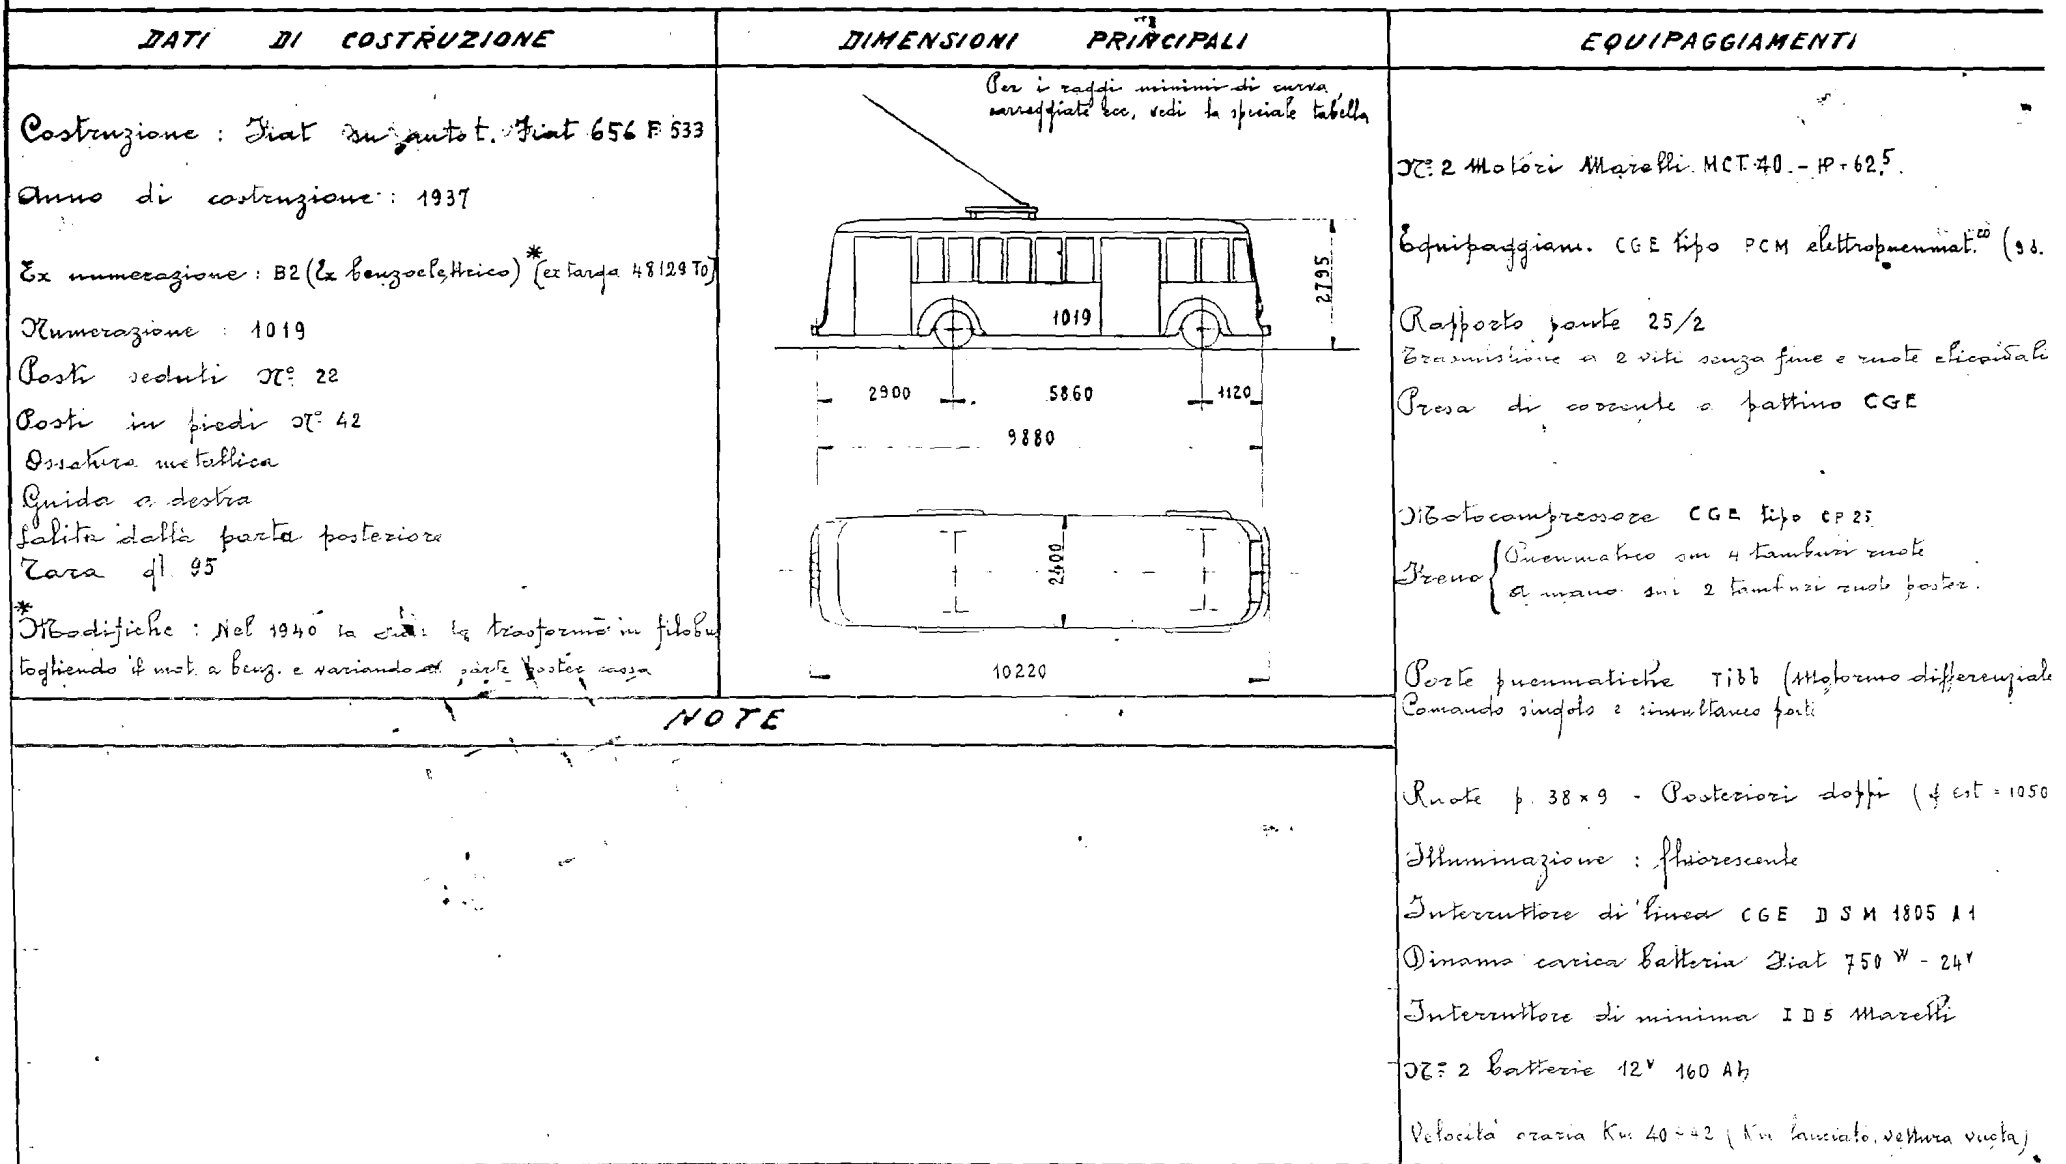 DATI DI COSTRUZIONE
Costruzione : Fiat su autot. Fiat 656 F 533
Anno di costruzione : 1937
Ex numerazione : B2 (Ex benzoelettrico) * (ex targa 48129 TO)
Numerazione : 1019
Posti seduti N° 22
Posti in piedi N° 42
Ossatura metallica
Guida a destra
Salita dalla porta posteriore
Tara ql. 95
* Modifiche : Nel 1940 la trasformò in filobus
togliendo il mot. a benz. e variando parte poster. cassa
DIMENSIONI PRINCIPALI
Per i raggi minimi di curva,
carreggiate ecc, vedi la speciale tabella
1019
2795
2900 5860 1120
9880
2400
10220
NOTE
EQUIPAGGIAMENTI
N° 2 Motori Marelli MCT 40 - HP 62,5.
Equipaggiam. CGE tipo PCM elettropneumat.co
Rapporto ponte 25/2
Trasmissione a 2 viti senza fine e ruote elicoidali
Presa di corrente a pattino CGE
Motocompressore CGE tipo CP 25
Freno { Pneumatico sui 4 tamburi ruote
a mano sui 2 tamburi ruote poster.
Porte pneumatiche Tibb (Motorino differenziale
Comando singolo e simultaneo porte
Ruote p. 38 x 9 - Posteriori doppi (ϕ est = 1050
Illuminazione : fluorescente
Interruttore di linea CGE DSM 1805 A1
Dinamo carica batteria Fiat 750 W - 24 V
Interruttore di minima ID5 Marelli
N° 2 batterie 12 V 160 Ah
Velocità oraria Km 40 ÷ 42 (Km lanciato, vettura vuota)